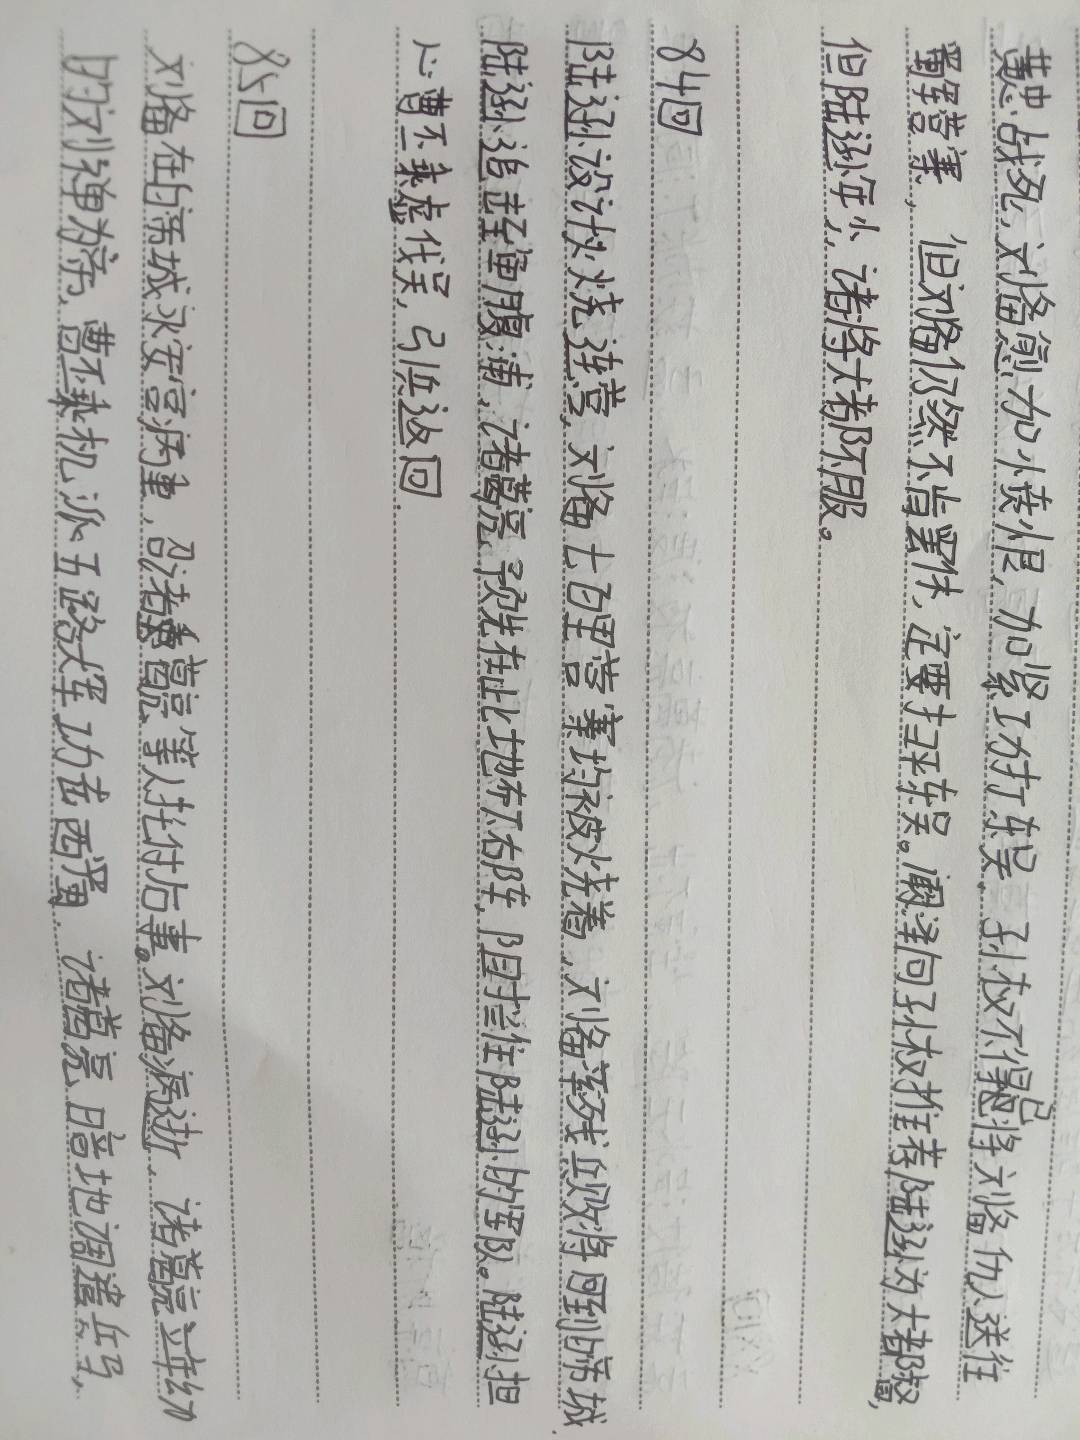 黄忠战死，刘备愈加愤恨，加紧功打东吴。孙权不得已将刘备仇人送往
蜀军营寨，但刘备仍然不肯罢休，定要扫平东吴。阚泽向孙权推荐陆逊为大都督，
但陆逊年小，诸将大都不服。
84回
陆逊设计火烧连营，刘备七百里营寨均被烧着，刘备率残兵败将 到白帝城.
陆逊追击至鱼腹浦，诸葛亮预先在此地布下石阵，阻拦住陆逊的军队。陆逊担
心曹丕乘虚伐吴，引兵返回.
85回
刘备在白帝城永安宫病重，召诸葛亮等人托付后事。刘备病逝、诸葛亮立年幼
的刘禅为帝，曹丕乘机派五路大军功击西蜀.诸葛亮暗地调遣兵马，